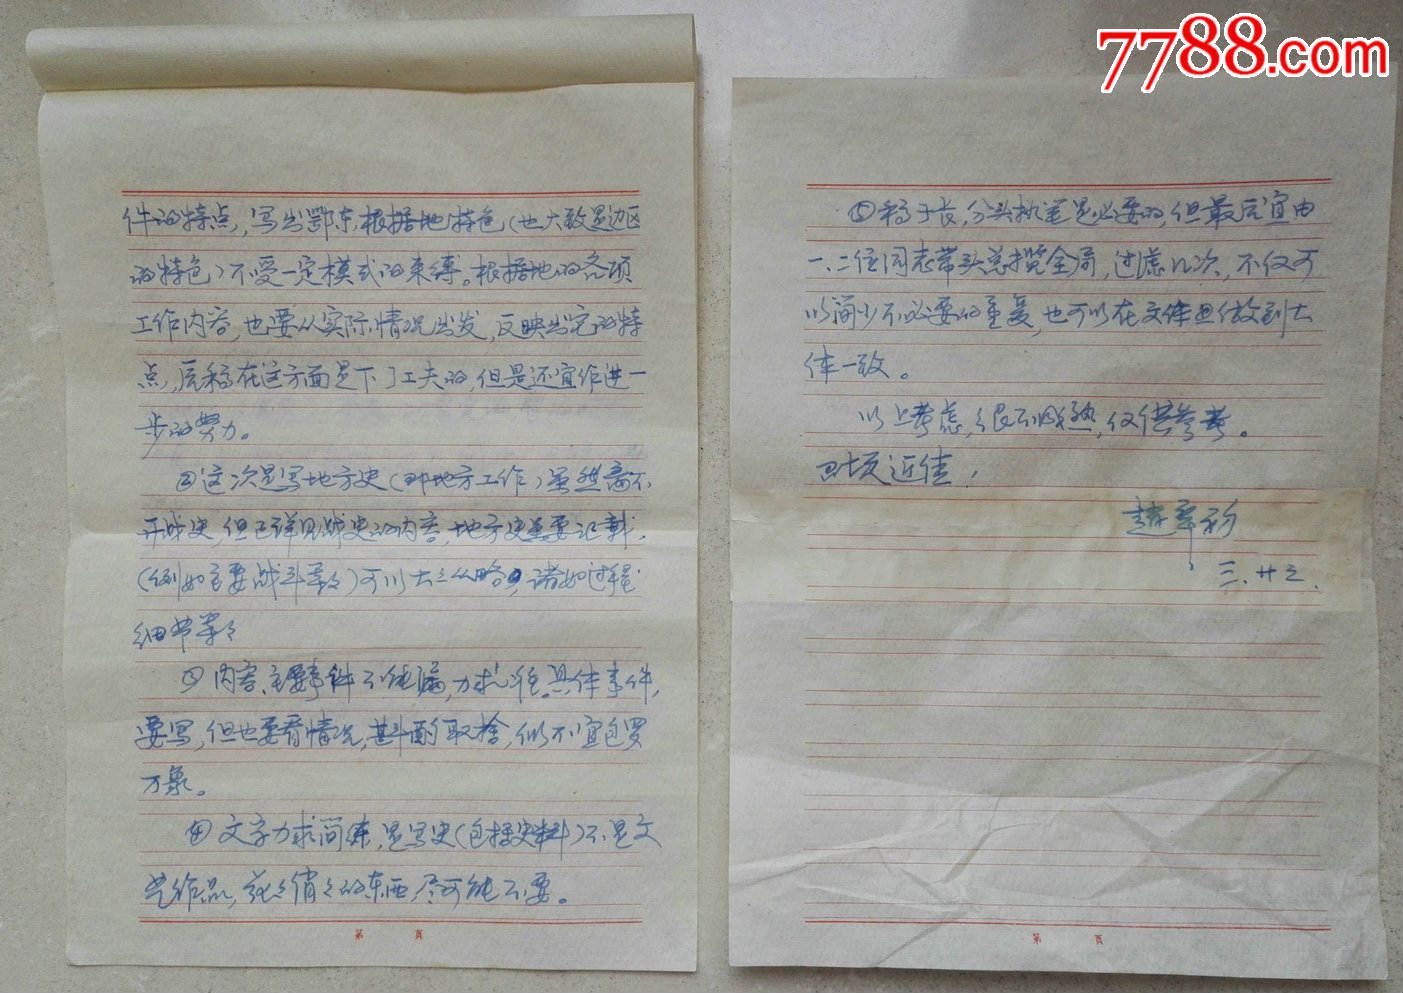 7788.com
件的特点，写出鄂东根据地特色（也大致是边区
的特色）不受一定模式的束缚。根据地的各项
工作内容，也要从实际情况出发，反映出它的特
点，原稿在这方面是下了工夫的，但是还宜作进一
步的努力。
②这次是写地方史（即地方工作）虽然离不
开战史，但已详见战史的内容，地方史重要记载，
（例如主要战斗等々）可以大々从略，诸如过程
细节等々
③内容、主要事件不能漏，力求准。具体事件，
要写，但也要看情况，斟酌取捨，似不宜包罗
万象。
④文字力求简练，是写史（包括史料）不是文
艺作品，花々俏々的东西，尽可能不要。
第 页
⑤稿子长，分头执笔是必要的，但最后宜由
一、二位同志带头总揽全局，过虑几次，不仅可
以简少不必要的重复，也可以在文体上做到大
体一致。
以上考虑，很不成熟，仅供参考。
即颂近佳！
赵辛初
三.廿三.
第 页